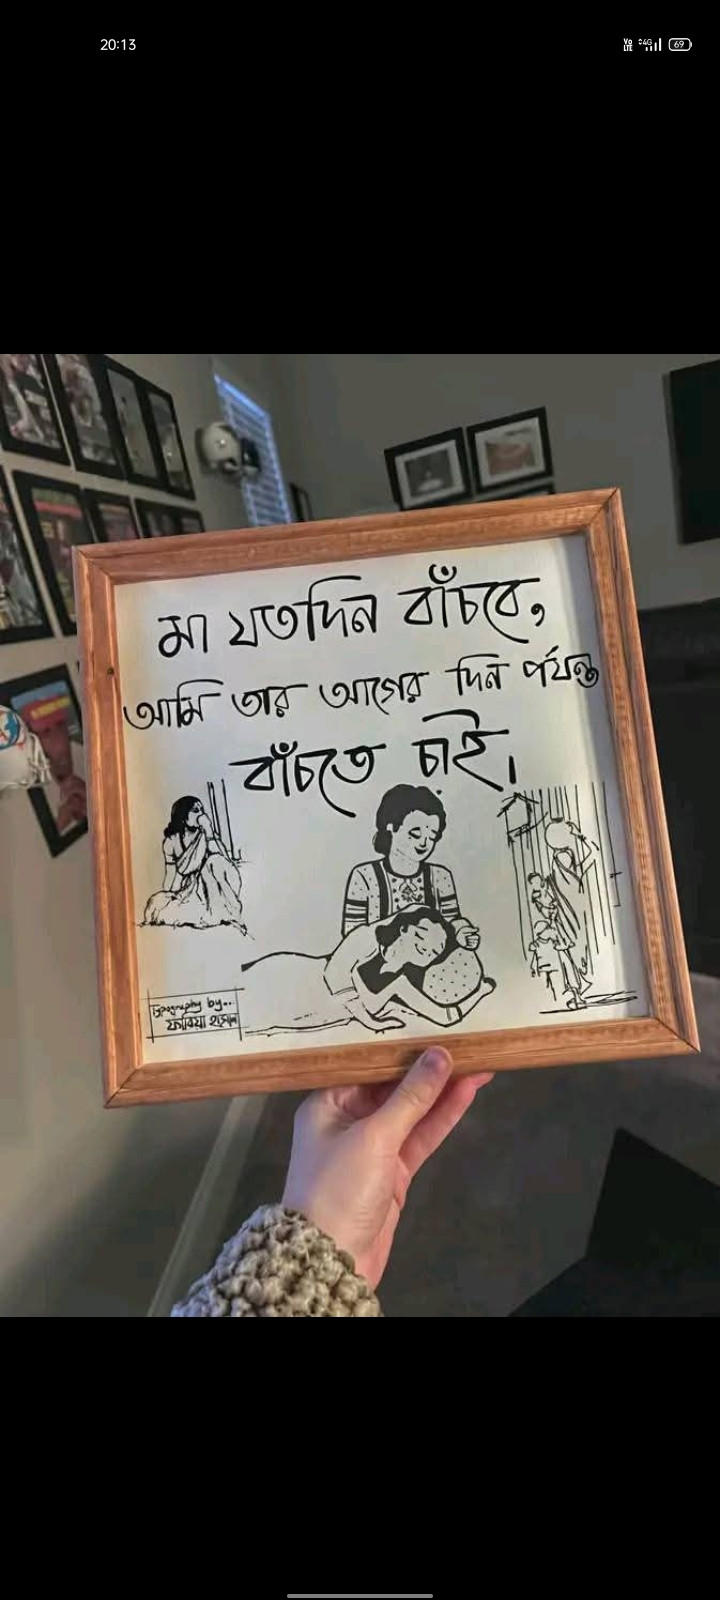 20:13
Vo LTE 4G 69
মা যতদিন বাঁচবে,
আমি তার আগের দিন পর্যন্ত
বাঁচতে চাই।
Typography by...
ফাবিয়া হাসান